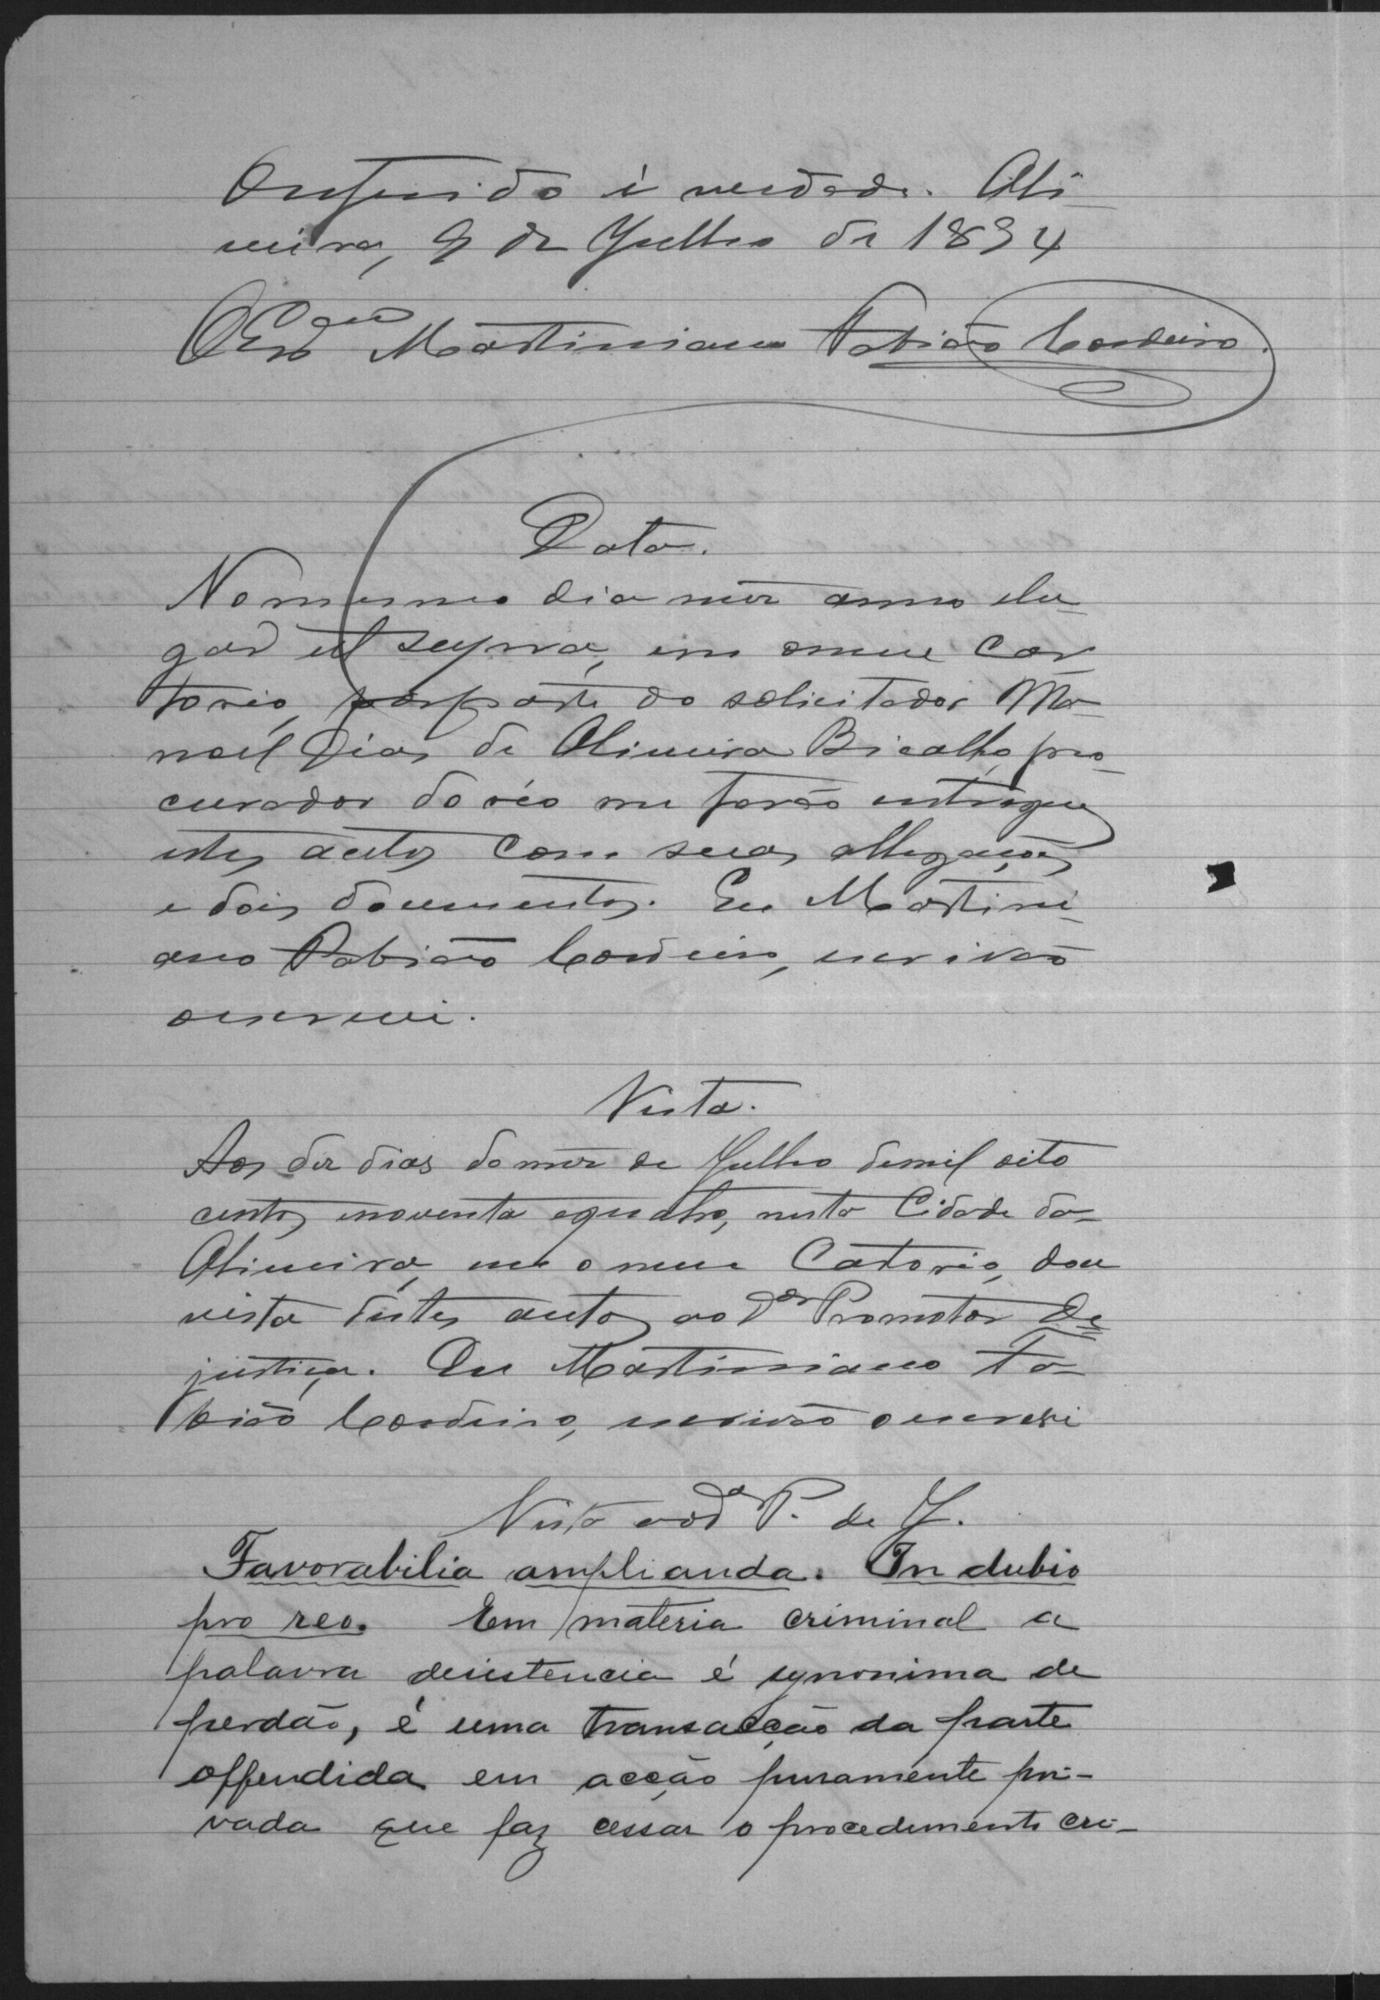 O referido é verdade. Oli-
veira, 9 de Julho de 1894
O Esc.am Martiniano Fabião Cordeiro.
Data.
No mesmo dia mez anno e lu-
gar ut supra, em o meu car-
torio, por parte do solicitador Ma-
noel Dias de Oliveira Bicalho, pro-
curador do réo me forão entregues
estes autos com suas allegações
e dois documentos. Eu Martini-
ano Fabião Cordeiro, escrivão
o escrevi.
Vista.
Aos dez dias do mez de Julho de mil oito
centos e noventa e quatro, nesta Cidade da
Oliveira, em o meu Catorio, dou
vista destes autos ao Dor Promotor De
justiça. Eu Martiniano Fa-
bião Cordeiro, escrivão o escrevi
Vista ao Dr P. de J.
Favorabilia amplianda. In dubio
pro reo. Em materia criminal a
palavra desistencia é synonima de
perdão, é uma transacção da parte
offendida em acção puramente pri-
vada que faz cessar o procedimento cri-